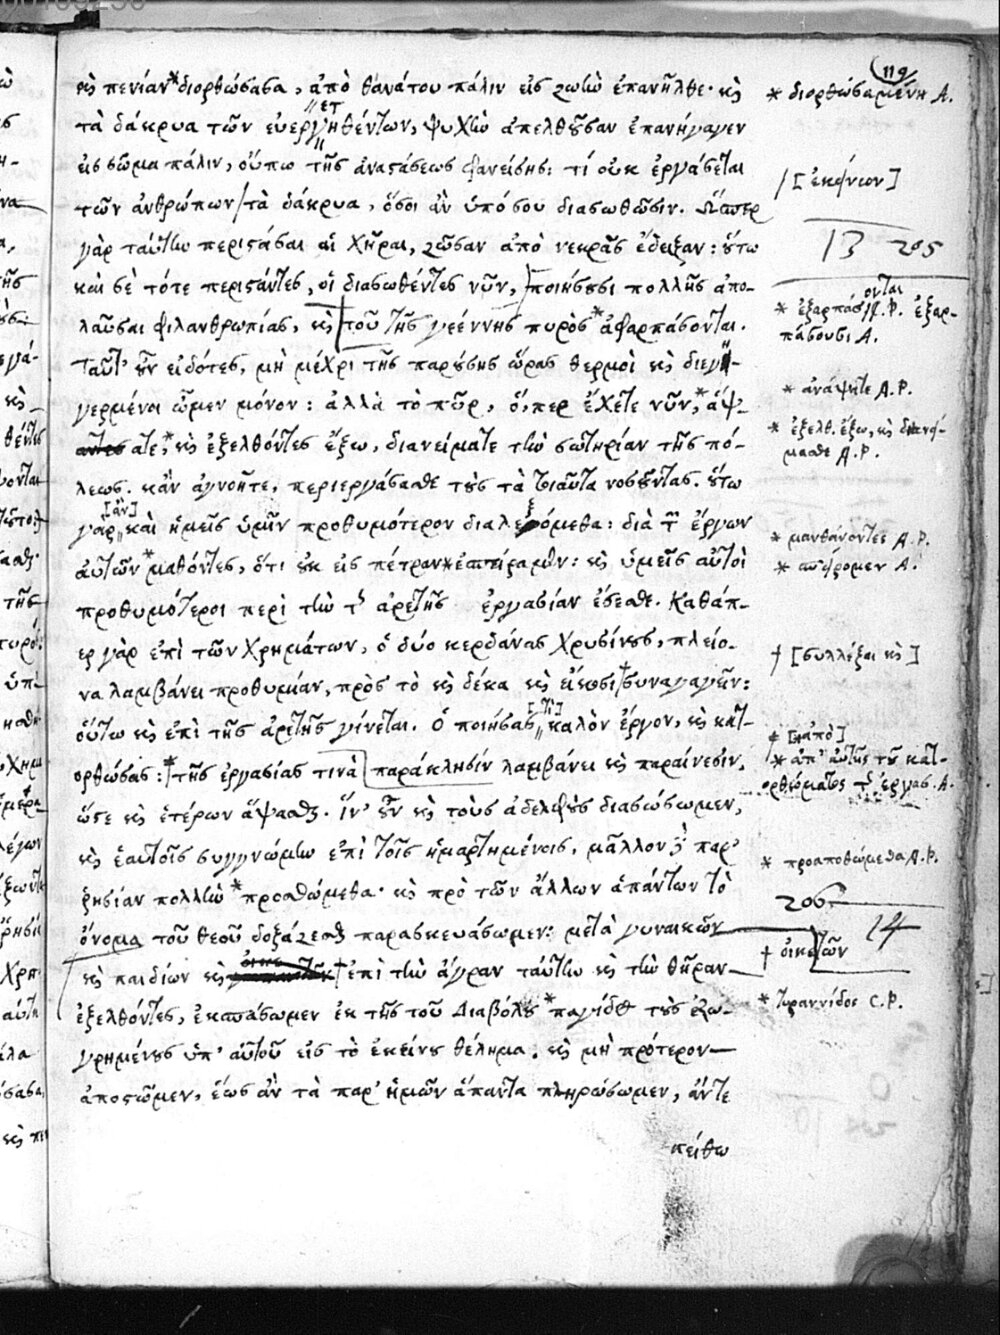 119
καὶ πενίαν *διορθώσασα, ἀπὸ θανάτου πάλιν εἰς ζωὴν ἐπανῆλθε· καὶ
τὰ δάκρυα τῶν εὐεργετηθέντων, ψυχὴν ἀπελθοῦσαν ἐπανήγαγεν
εἰς σῶμα πάλιν, οὔπω τῆς ἀναστάσεως φανείσης: τί οὐκ ἐργάσεται
τῶν ἀνθρώπων / τὰ δάκρυα, ὅσοι ἂν ὑπό σου διασωθῶσιν. Ὥσπερ
γὰρ ταύτην περιστᾶσαι αἱ χῆραι, ζῶσαν ἀπὸ νεκρᾶς ἔδειξαν: οὕτω
καὶ σὲ τότε περιστάντες, οἱ διασωθέντες νῦν, ποιήσουσι πολλῆς ἀπο-
λαῦσαι φιλανθρωπίας, καὶ τοῦ τῆς γεέννης πυρὸς *ἀφαρπάσονται.
ταῦτ' οὖν εἰδότες, μὴ μέχρι τῆς παρούσης ὥρας θερμοὶ καὶ διεγη-
γερμένοι ὦμεν μόνον: ἀλλὰ τὸ πῦρ, ὅ, περ ἔχετε νῦν, *ἅψ-
ατε, *καὶ ἐξελθόντες ἔξω, διανείματε τὴν σωτηρίαν τῆς πό-
λεως. κἂν ἀγνοῆτε, περιεργάσασθε τοὺς τὰ τοιαῦτα νοσοῦντας. οὕτω
γὰρ [ἂν] καὶ ἡμεῖς ὑμῖν προθυμότερον διαλεξόμεθα: διὰ τῶν ἔργων
αὐτῶν *μαθόντες, ὅτι οὐκ εἰς πέτραν *ἐσπείραμεν: καὶ ὑμεῖς αὐτοὶ
προθυμότεροι περὶ τὴν τῆς ἀρετῆς ἐργασίαν ἔσεσθε. Καθάπ-
ερ γὰρ ἐπὶ τῶν χρημάτων, ὁ δύο κερδάνας χρυσίνους, πλείο-
να λαμβάνει προθυμίαν, πρὸς τὸ καὶ δέκα καὶ εἴκοσι † συναγαγεῖν:
οὕτω καὶ ἐπὶ τῆς ἀρετῆς γίνεται. Ὁ ποιήσας [τὶ] καλὸν ἔργον, καὶ κατ-
ορθώσας: † *τῆς ἐργασίας τινὰ παράκλησιν λαμβάνει καὶ παραίνεσιν,
ὥστε καὶ ἑτέρων ἅψασθαι. ἵν' οὖν καὶ τοὺς ἀδελφοὺς διασώσωμεν,
καὶ ἑαυτοῖς συγγνώμην ἐπὶ τοῖς ἡμαρτημένοις, μᾶλλον δὲ παρ'
ρησίαν πολλὴν *προσθώμεθα· καὶ πρὸ τῶν ἄλλων ἁπάντων τὸ
ὄνομα τοῦ θεοῦ δοξάζεσθαι παρασκευάσωμεν: μετὰ γυναικῶν
καὶ παιδίων καὶ † ἐπὶ τὴν ἄγραν ταύτην καὶ τὴν θήραν
ἐξελθόντες, ἐκσπάσωμεν ἐκ τῆς τοῦ Διαβόλου *παγίδος τοὺς ἐζω-
γρημένους ὑπ' αὐτοῦ εἰς τὸ ἐκείνου θέλημα. καὶ μὴ πρότερον
ἀποστῶμεν, ἕως ἂν τὰ παρ' ἡμῶν ἅπαντα πληρώσωμεν, ἄντε
πείθω
* διορθώσαμένη Α.
/ [ἐκείνων]
13 205
* ἐξαρπάσονται Α.Ρ. ἐξαρ-
πάσουσι Α.
* ἀνάψατε Α.Ρ.
* ἐξελθ. ἔξω, καὶ διανεί-
μασθε Α.Ρ.
* μανθάνοντες Α.Ρ.
* σπείρομεν Α.
† [συλλέξαι καὶ]
† [ἀπὸ]
* ἀπ' αὐτῆς τοῦ κατ-
ορθώματος τῆς ἐργασ. Α.
* προαποθώμεθα Α.Ρ.
206
14
† οἰκετῶν
* τυραννίδος C.Ρ.